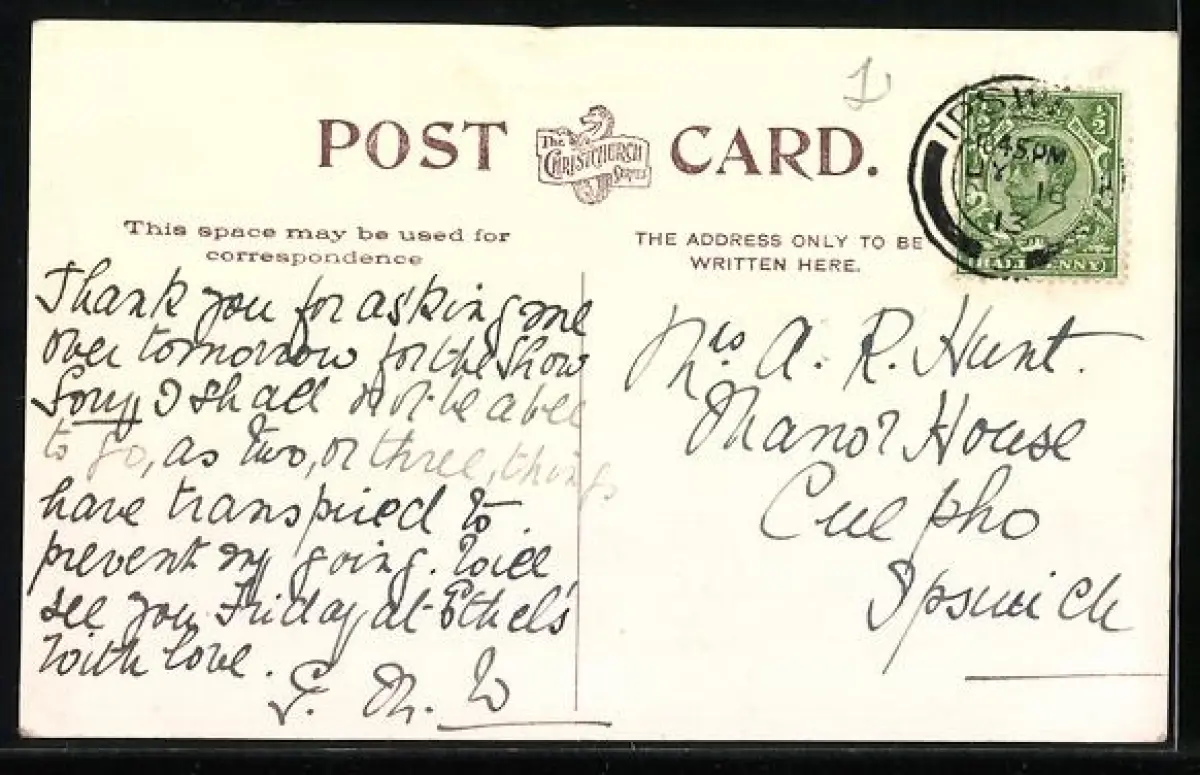 1
POST The CHRISTCHURCH Series CARD.
This space may be used for
correspondence
THE ADDRESS ONLY TO BE
WRITTEN HERE.
IPSWI
45 PM
13
HALFPENNY
Thank you for asking me
over tomorrow for the show
Sorry I shall not be able
to go, as two, or three, things
have transpired to
prevent my going. Will
see you Friday at Ethel's
With love.
M. W
Mrs. A. R. Hunt.
Manor House
Culpho
Ipswich